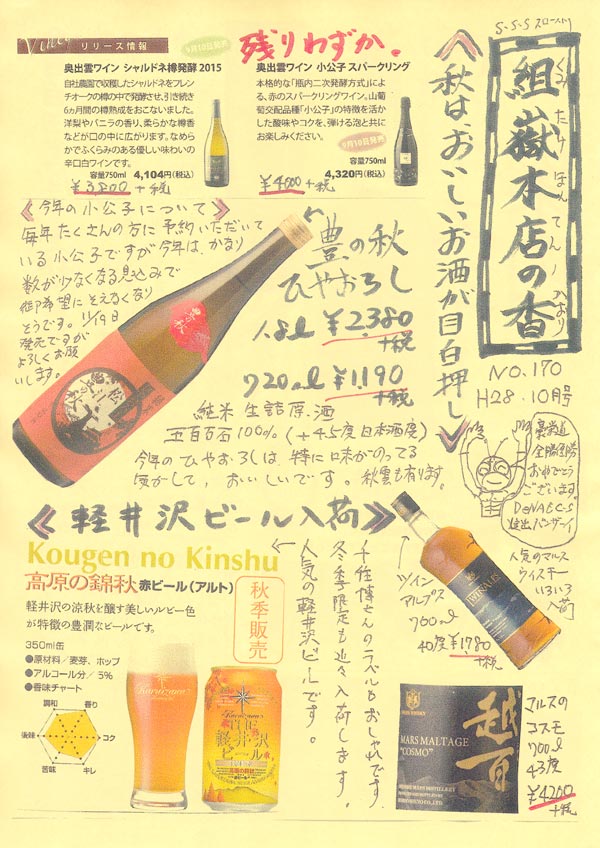 S-S-S スロースト
組嶽本店の香
くみたけほんてんノかおり
NO.170
H28.10月号
≪秋は、おいしいお酒が目白押し≫
Vinet
リリース情報
9月10日発売
残りわずか。
奥出雲ワイン シャルドネ樽発酵 2015
自社農園で収穫したシャルドネをフレン
チオークの樽の中で発酵させ、引き続き
6ヵ月間の樽熟成をおこないました。
洋梨やバニラの香り、柔らかな樽香
などが口の中に広がります。なめら
かでふくらみのある優しい味わいの
辛口白ワインです。
容量750ml 4,104円(税込)
¥3,800+税
奥出雲ワイン 小公子 スパークリング
本格的な「瓶内二次発酵方式」によ
る、赤のスパークリングワイン。山葡
萄交配品種「小公子」の特徴を活か
した酸味やコクを、弾ける泡と共に
お楽しみください。
9月10日発売
容量750ml
4,320円(税込)
¥4000+税
≪今年の小公子について≫
毎年たくさんの方に予約いただいて
いる小公子ですが今年は、かなり
数が少なくなる見込みで
御希望にそえなくなり
そうです。11/19日
発売ですが
よろしくお願
いします。
豊の秋
ひやおろし
1.8ℓ ¥2,380
+税
720mℓ ¥1,190
+税
純米 生詰原酒
五百万石100% (+4.5度日本酒度)
今年のひやおろしは、特に味がのってる
気がして、おいしいです。秋雲も有ります。
豪栄道
全勝優勝
おめでとう
ございます。
DeNAもCS
進出バンザーイ
≪軽井沢ビール入荷≫
Kougen no Kinshu
高原の錦秋 赤ビール(アルト)
軽井沢の涼秋を醸す美しいルビー色
が特徴の豊潤なビールです。
秋季販売
350ml缶
●原材料／麦芽、ホップ
●アルコール分／5%
●香味チャート
調和
香り
後味
コク
苦味
キレ
THE軽井沢ビール
高原の錦秋
千住博さんのラベルもおしゃれです。
冬季限定も近々入荷します。
人気の軽井沢ビールです。
ツイン
アルプス
750mℓ
40度 ¥1,780
+税
TWIN ALPS
人気のマルス
ウイスキー
いろいろ
入荷
越百
MARS MALTAGE
"COSMO"
マルスの
コスモ
700ℓ
43度
¥4200
+税